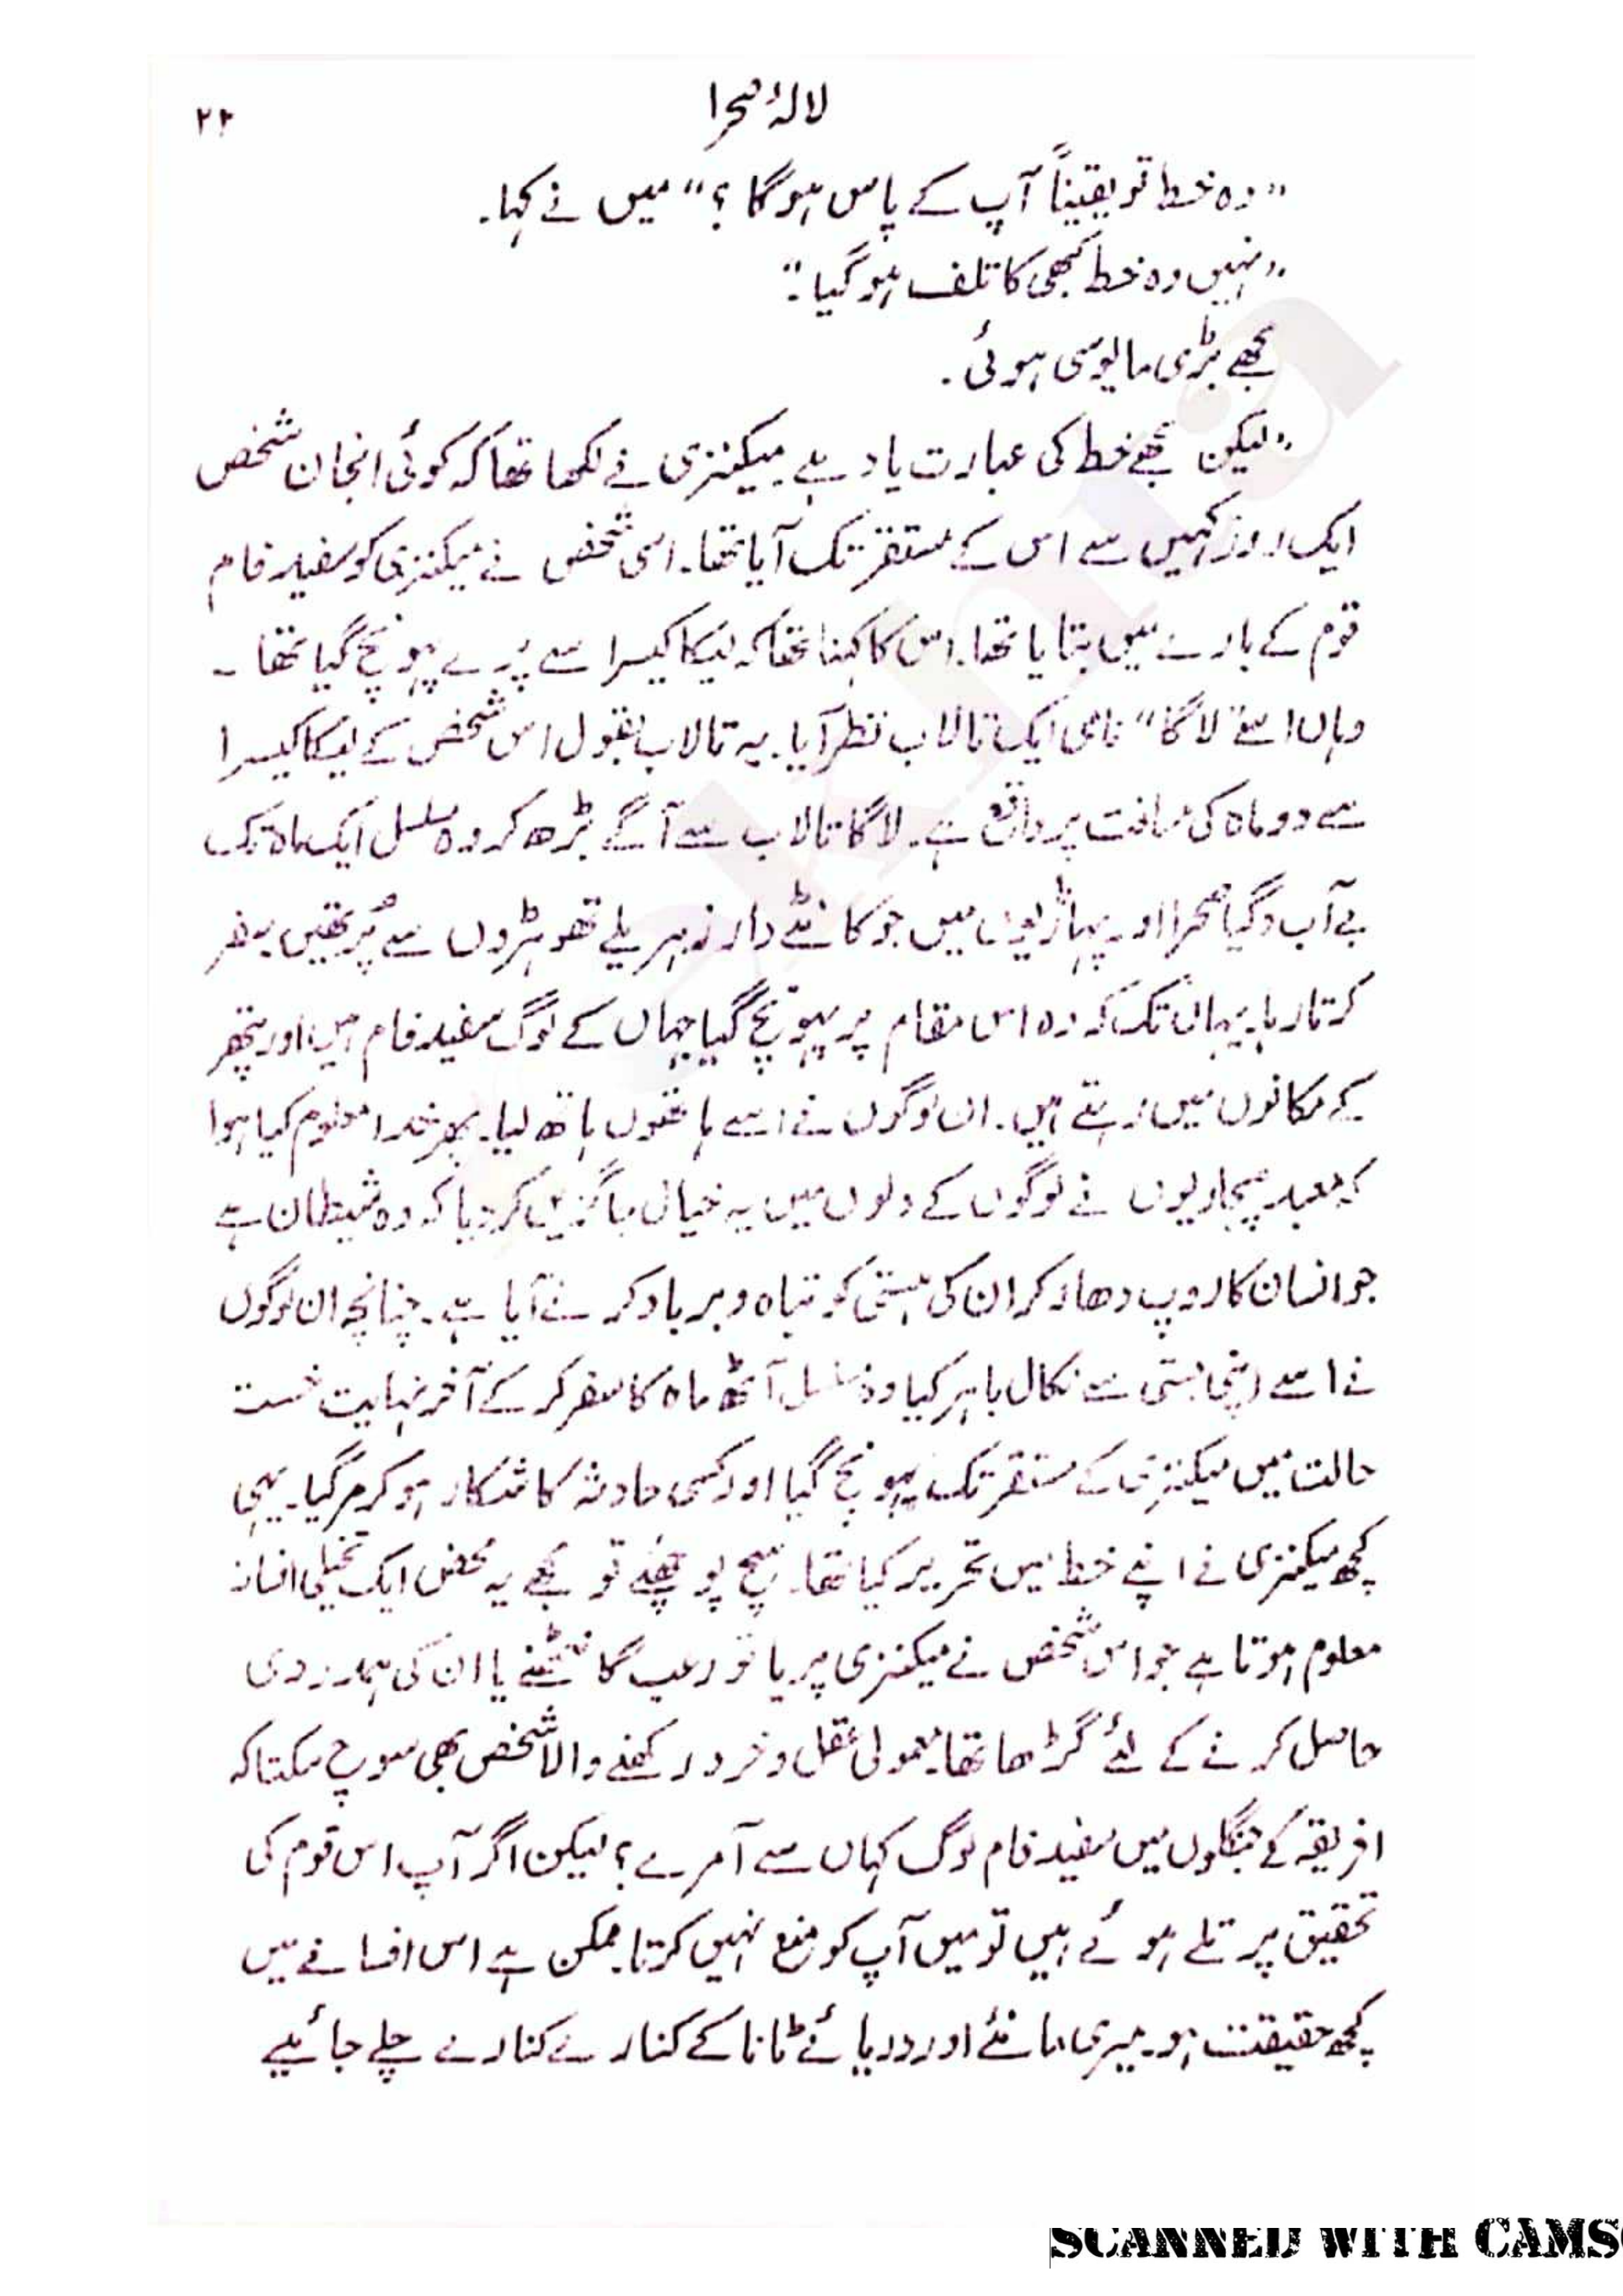 لالۂ صحرا ۲۳
"وہ خط تو یقیناً آپ کے پاس ہوگا؟" میں نے کہا.
"نہیں وہ خط کبھی کا تلف ہوگیا."
مجھے بڑی مایوسی ہوئی.
"لیکن مجھے خط کی عبارت یاد ہے. میکنزی نے لکھا تھا کہ کوئی انجان شخص
ایک روز کہیں سے اس کے مستقر تک آیا تھا. اسی شخص نے میکنزی کو سفید فام
قوم کے بارے میں بتایا تھا. اس کا کہنا تھا کہ لیکا کیسرا سے پرے پہونچ گیا تھا۔
وہاں اسے "لاگا" نامی ایک تالاب نظر آیا. یہ تالاب بقول اس شخص کے لیکا کیسرا
سے دو ماہ کی مسافت پر واقع ہے. لاگا تالاب سے آگے بڑھ کر وہ مسلسل ایک ماہ تک
بے آب و گیاہ صحرا اور پہاڑیوں میں جو کانٹے دار زہریلے تھوہڑوں سے پُر تھیں سفر
کرتا رہا. یہاں تک کہ وہ اس مقام پر پہونچ گیا جہاں کے لوگ سفید فام ہیں اور پتھر
کے مکانوں میں رہتے ہیں. ان لوگوں نے اسے ہاتھوں ہاتھ لیا. پھر خدا معلوم کیا ہوا
کہ معبد پجاریوں نے لوگوں کے دلوں میں یہ خیال جاگزیں کر دیا کہ وہ شیطان ہے
جو انسان کا روپ دھار کر ان کی ہستی کو تباہ و برباد کرنے آیا ہے. چنانچہ ان لوگوں
نے اسے اپنی بستی سے نکال باہر کیا وہ مسلسل آٹھ ماہ کا سفر کر کے آخر نہایت خستہ
حالت میں میکنزی کے مستقر تک پہونچ گیا اور کسی حادثہ کا شکار ہو کر مر گیا. یہی
کچھ میکنزی نے اپنے خط میں تحریر کیا تھا. سچ پوچھئے تو مجھے یہ محض ایک تخیلی افسانہ
معلوم ہوتا ہے جو اس شخص نے میکنزی پر یا تو رعب گانٹھنے یا ان کی ہمدردی
حاصل کرنے کے لئے گڑھا تھا. معمولی عقل و خرد رکھنے والا شخص بھی سوچ سکتا کہ
افریقہ کے جنگلوں میں سفید فام لوگ کہاں سے آمرے؟ لیکن اگر آپ اس قوم کی
تحقیق پر تلے ہوئے ہیں تو میں آپ کو منع نہیں کرتا. ممکن ہے اس افسانے میں
کچھ حقیقت ہو. میری مانئے اور دریائے ٹانا کے کنارے کنارے چلے جائیے
SCANNED WITH CAMS